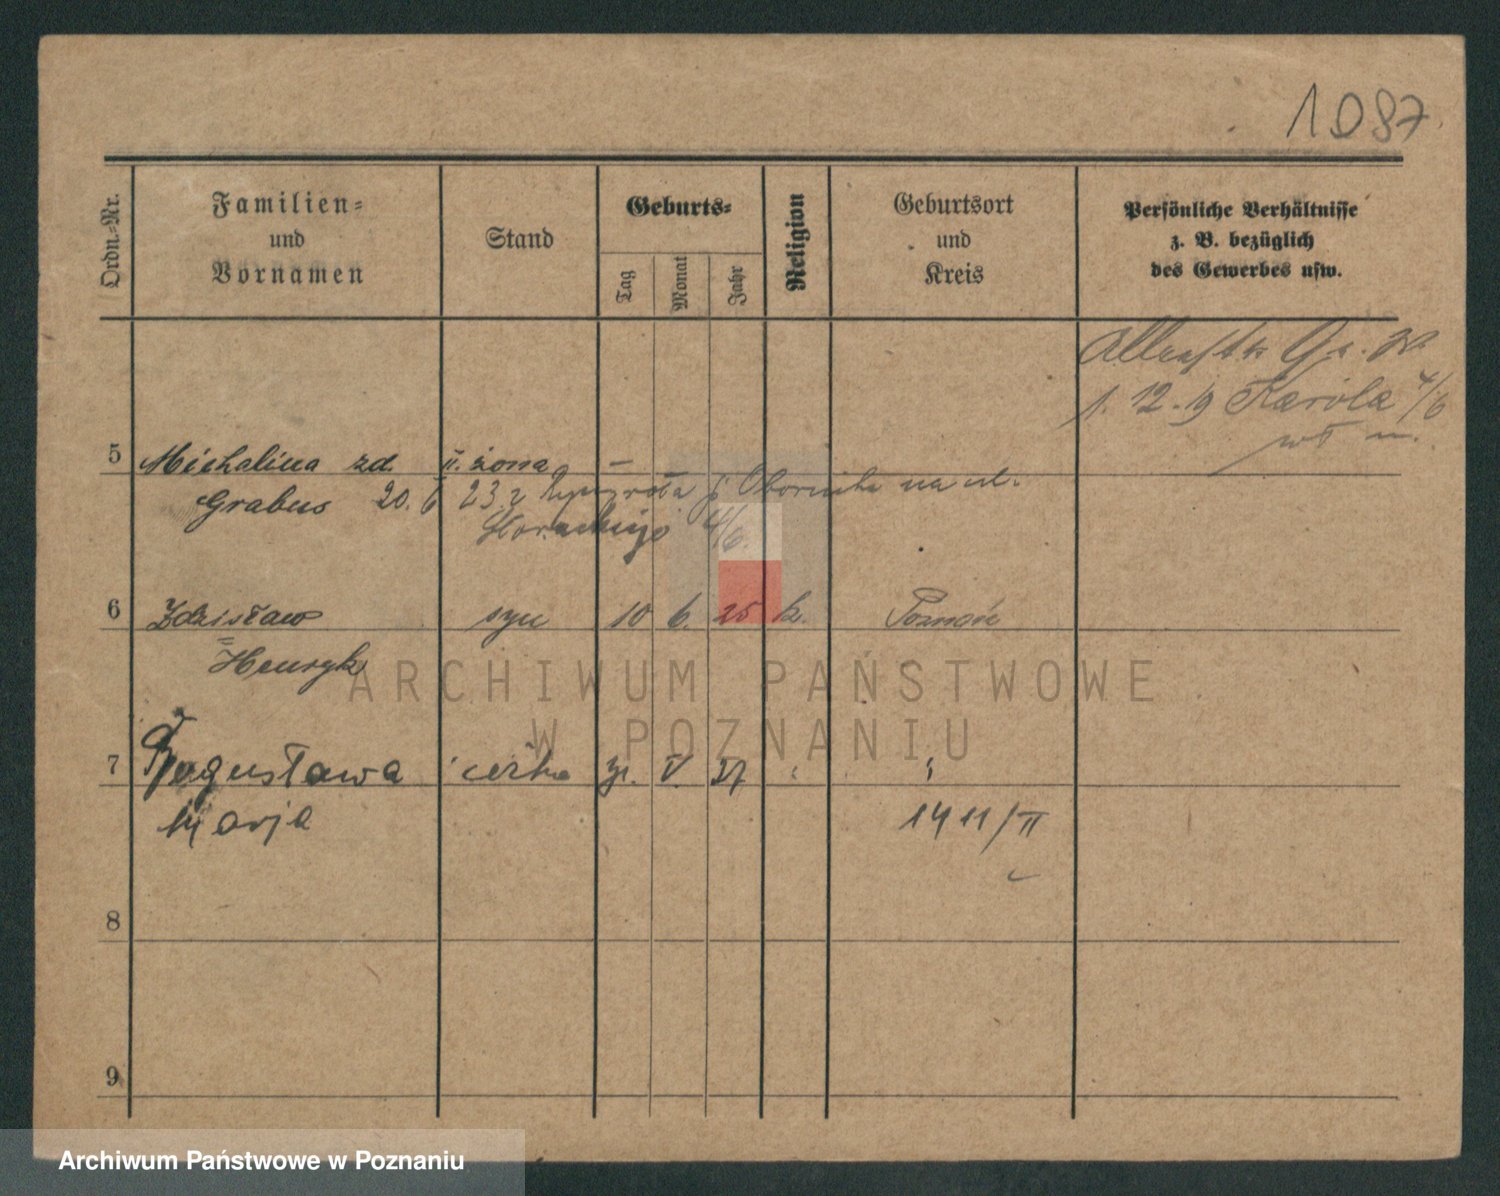 1087
Ordn.-Nr.
Familien-
und
Vornamen
Stand
Geburts-
Tag
Monat
Jahr
Religion
Geburtsort
und
Kreis
Persönliche Verhältnisse
z. B. bezüglich
des Gewerbes usw.
1. 12. 19 Karola 4/6
5 Michalina zd. II. żona –
Grabus 20. 23 r na ul.
4/6.
6 Zdzisław syn 10 6. 25 k. Poznań
Henryk
7 Bogusława córka V. 27 "
Marja 1411/II
8
9
ARCHIWUM PAŃSTWOWE
W POZNANIU
Archiwum Państwowe w Poznaniu